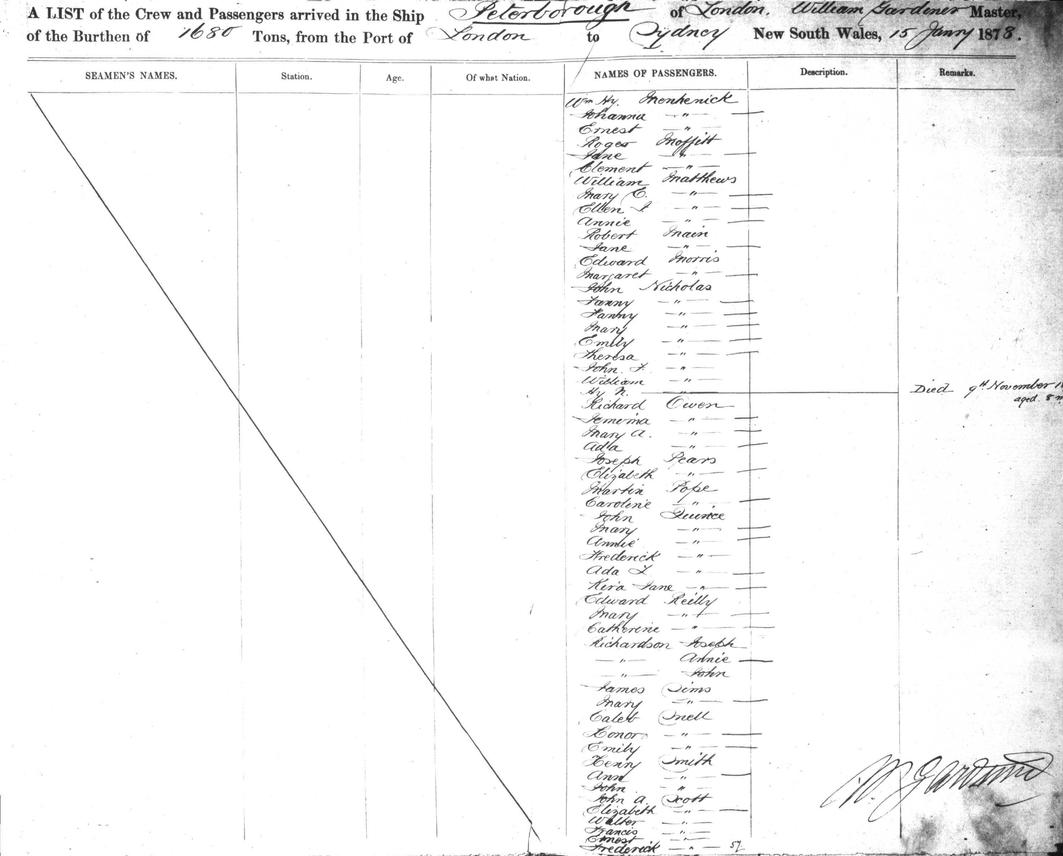 A LIST of the Crew and Passengers arrived in the Ship Peterborough of London, William Gardener Master,
of the Burthen of 1680 Tons, from the Port of London to Sydney New South Wales, 15 Janry 1873.
SEAMEN'S NAMES. Station. Age. Of what Nation. NAMES OF PASSENGERS. Description. Remarks.
Wm Hy. Menhenick
Johanna — " —
Ernest — " —
Roger Moffitt
Jane — " —
Clement — " —
William Matthews
Mary E. — " —
Ellen J — " —
Annie — " —
Robert Main
Jane — " —
Edward Morris
Margaret — " —
John Nicholas
Fanny — " —
Fanny — " —
Mary — " —
Emily — " —
Theresa — " —
John F. — " —
William — " —
Hy N. — " — Died 9th November
aged 8
Richard Owen
Jemima — " —
Mary A. — " —
Ada — " —
Joseph Pears
Elizabeth — " —
Martin Pope
Caroline — " —
John Quince
Mary — " —
Annie — " —
Frederick — " —
Ada L — " —
Kira Jane — " —
Edward Reilly
Mary — " —
Catherine — " —
Richardson Joseph
— " — Annie
— " — John
James Sims
Mary — " —
Caleb Snell
Honor — " —
Emily — " —
Henry Smith
Ann — " —
John "
John A. Scott
Elizabeth — " —
Walter — " —
Francis — " —
Ernest — " —
Frederick — " — 57
W. Gardener